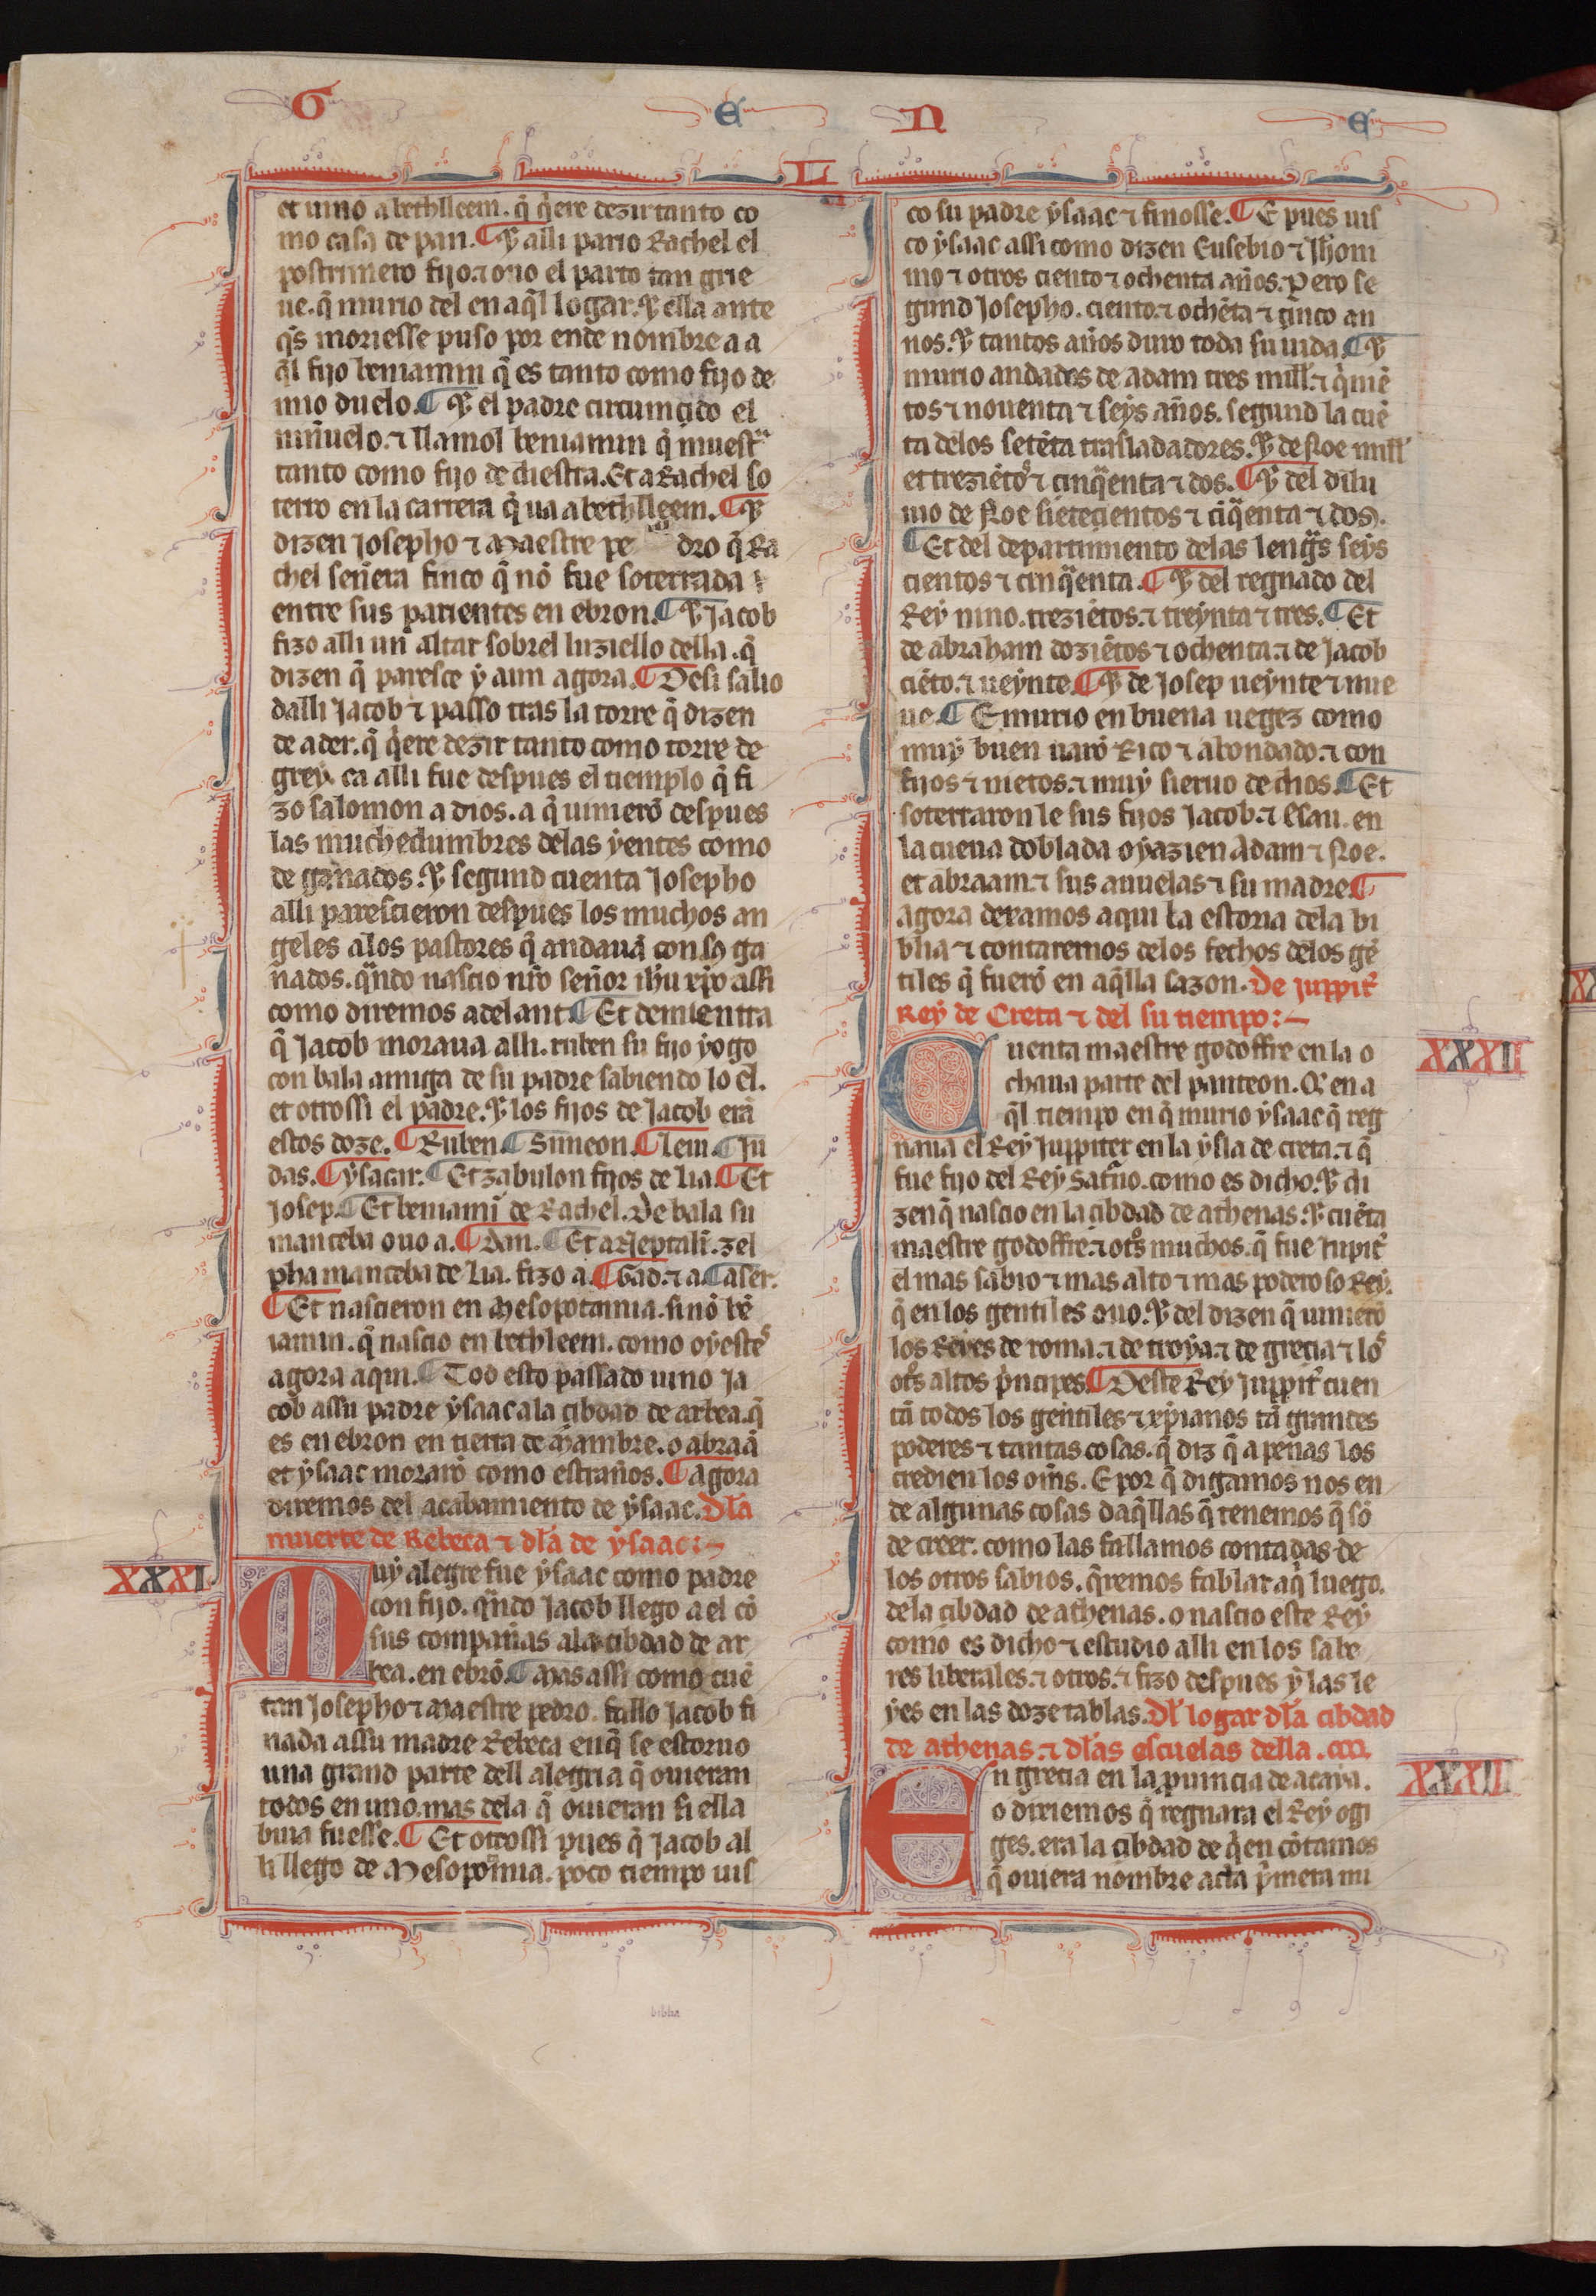 G E N E
L
et uino a bethlleem. q̃ q̃ere dezir tanto co
mo casa de pan. ¶ ⁊ alli pario Rachel el
postrimero fijo. ⁊ ouo el parto tan grie
ue. q̃ murio del en aq̃l logar. ⁊ ella ante
q̃s moriesse puso por ende nombre a a
q̃l fijo beniamin q̃ es tanto como fijo de
mio duelo. ¶ ⁊ el padre circumçido el
niñuelo. ⁊ llamol beniamin q̃ muestᵃ
tanto como fijo de diestra. Et a Rachel so
terro en la carrera q̃ ua a bethlleem. ¶ ⁊
dizen Josepho ⁊ Maestre pe dro q̃ Ra
chel señera finco q̃ nõ fue soterrada
entre sus parientes en ebron. ¶ ⁊ Jacob
fizo alli un altar sobrel luziello della. q̃
dizen q̃ paresce y aun agora. ¶ Desi salio
dalli Jacob ⁊ passo tras la torre q̃ dizen
de ader. q̃ q̃ere dezir tanto como torre de
grey. ca alli fue despues el tiemplo q̃ fi
zo salomon a dios. a q̃ uinierõ despues
las muchedumbres delas yentes como
de ganados. ⁊ segund cuenta Josepho
alli parescieron despues los muchos an
geles alos pastores q̃ andauã con so ga
nados. qñdo nascio nr̃o señor ihũ xp̃o assi
como diremos adelant ¶ Et demientra
q̃ Jacob moraua alli. ruben su fijo yogo
con bala amiga de su padre sabiendo lo el.
et otrossi el padre. ⁊ los fijos de Jacob erã
estos doze. ¶ Ruben. ¶ Simeon. ¶ Leui. ¶ Ju
das. ¶ ysacar. ¶ Et zabulon fijos de Lia. ¶ Et
Josep. ¶ Et beniamĩ de Rachel. De bala su
manceba ouo a. ¶ Dan. ¶ Et a Neptalĩ. zel
pha manceba de Lia. fizo a. ¶ Gad. ⁊ a. ¶ aser.
¶ Et nascieron en Mesopotamia. sinõ bẽ
iamin. q̃ nascio en bethleem. como oyestes
agora aqui. ¶ Tod esto passado uino Ja
cob assu padre ysaac ala cibdad de arbea. q̃
es en ebron en tierra de Mambre. o abraã
et ysaac morarõ como estraños. ¶ agora
diremos del acabamiento de ysaac. Dl̃a
muerte de Rebeca ⁊ dl̃a de ysaac :~
XXXI
Muy alegre fue ysaac como padre
con fijo. qñdo Jacob llego a el cõ
sus compañas ala cibdad de ar
bea. en ebrõ. ¶ Mas assi como cuẽ
tan Josepho ⁊ Maestre pedro. fallo Jacob fi
nada assu madre Rebeca enq̃ se estoruo
una grand parte dell alegria q̃ ouieran
todos en uno. mas dela q̃ ouieran si ella
biua fuesse. ¶ Et otrossi pues q̃ Jacob al
li llego de Mesopotmia. poco tiempo uis
co su padre ysaac ⁊ finosse. ¶ E pues uis
co ysaac assi como dizen Eusebio ⁊ Jhom
mo ⁊ otros ciento ⁊ ochenta años. Pero se
gund Josepho. ciento. ⁊ ochẽta ⁊ cinco an
nos. ⁊ tantos años duro toda su uida. ¶ ⁊
murio andados de adam tres mill. ⁊ q̃niẽ
tos ⁊ nouenta ⁊ seys años. segund la cuẽ
ta delos setẽta trasladadores. ⁊ de Noe mill
et treziẽtos ⁊ cinq̃enta ⁊ dos. ¶ ⁊ del dilu
uio de Noe sietecientos ⁊ ciq̃enta ⁊ dos.
¶ Et del departimiento delas lengᵃs seys
cientos ⁊ cinq̃enta. ¶ ⁊ del regnado del
Rey nino. treziẽtos. ⁊ treynta ⁊ tres. ¶ Et
de abraham doziẽtos ⁊ ochenta. ⁊ de Jacob
ciẽto. ⁊ ueynte. ¶ ⁊ de Josep ueynte ⁊ nue
ue. ¶ E murio en buena uegez como
muy buen uarõ Rico ⁊ abondado. ⁊ con
fijos ⁊ nietos. ⁊ muy sieruo de dios. ¶ Et
soterraron le sus fijos Jacob. ⁊ Esau. en
la cueua doblada o yazien Adam ⁊ Noe.
et abraam. ⁊ sus auuelas ⁊ su madre ¶
agora dexamos aqui la estoria dela bi
blia ⁊ contaremos delos fechos delos gẽ
tiles q̃ fuerõ en aq̃lla sazon. De juppiter
Rey de Creta ⁊ del su tiempo :~
XXXII
Cuenta maestre godoffre en la o
chaua parte del panteon. Q̃ en a
q̃l tiempo en q̃ murio ysaac q̃ reg
naua el Rey Juppiter en la ysla de creta. ⁊ q̃
fue fijo del Rey Satñno. como es dicho. ⁊ di
zen q̃ nascio en la cibdad de athenas. ⁊ cuẽta
maestre godoffre. ⁊ otᵒs muchos. q̃ fue Jupiter
el mas sabio ⁊ mas alto ⁊ mas poderoso Rey.
q̃ en los gentiles ouo. ⁊ del dizen q̃ uinierõ
los Reyes de roma. ⁊ de troya. ⁊ de grecia ⁊ los
otᵒs altos prĩcipes. ¶ Deste Rey Juppiter cuen
tã todos los gentiles ⁊ xp̃ianos tã grandes
poderes ⁊ tantas cosas. q̃ diz q̃ a penas los
credien los om̃s. E por q̃ digamos nos en
de algunas cosas daq̃llas q̃ tenemos q̃ sõ
de creer. como las fallamos contadas de
los otros sabios. q̃remos fablar aq̃ luego.
dela cibdad de athenas. o nascio este Rey
como es dicho ⁊ estudio alli en los sabe
res liberales. ⁊ otros. ⁊ fizo despues y las le
yes en las doze tablas. Dl̃ logar dl̃a cibdad
de athenas. ⁊ dl̃as escuelas della.
XXXIII
En grecia en la puincia de acaya.
o dixiemos q̃ regnara el Rey ogi
ges. era la cibdad de q̃en cõtamos
q̃ ouiera nombre acta p̃mera mi
biblia